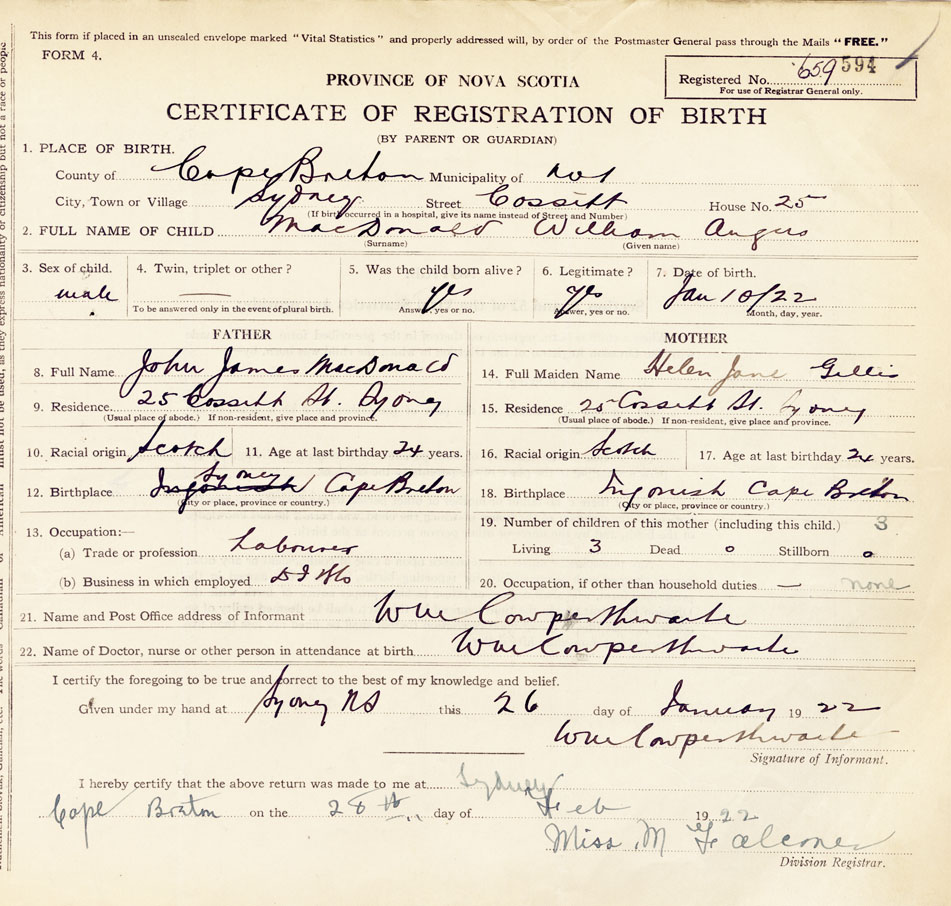 This form if placed in an unsealed envelope marked "Vital Statistics" and properly addressed will, by order of the Postmaster General pass through the Mails "FREE."
FORM 4.
PROVINCE OF NOVA SCOTIA
Registered No. 659 594
For use of Registrar General only.
CERTIFICATE OF REGISTRATION OF BIRTH
(BY PARENT OR GUARDIAN)
1. PLACE OF BIRTH.
County of Cape Breton Municipality of
City, Town or Village Sydney Street Cossitt House No. 25
(If birth occurred in a hospital, give its name instead of Street and Number)
2. FULL NAME OF CHILD MacDonald William Angus
(Surname) (Given name)
3. Sex of child. 4. Twin, triplet or other? 5. Was the child born alive? 6. Legitimate? 7. Date of birth.
male — yes yes Jan 10/22
To be answered only in the event of plural birth. Answer, yes or no. Answer, yes or no. Month, day, year.
FATHER
8. Full Name John James MacDonald
9. Residence. 25 Cossitt St. Sydney
(Usual place of abode.) If non-resident, give place and province.
10. Racial origin Scotch 11. Age at last birthday 24 years.
Sydney
12. Birthplace Ingonish Cape Breton
(City or place, province or country.)
13. Occupation:—
(a) Trade or profession Labourer
(b) Business in which employed
MOTHER
14. Full Maiden Name Helen Jane Gillis
15. Residence 25 Cossitt St. Sydney
(Usual place of abode.) If non-resident, give place and province.
16. Racial origin Scotch 17. Age at last birthday 24 years.
18. Birthplace Ingonish Cape Breton
(City or place, province or country.)
19. Number of children of this mother (including this child.) 3
Living 3 Dead 0 Stillborn 0
20. Occupation, if other than household duties — none
21. Name and Post Office address of Informant Wm Cowperthwaite
22. Name of Doctor, nurse or other person in attendance at birth. Wm Cowperthwaite
I certify the foregoing to be true and correct to the best of my knowledge and belief.
Given under my hand at Sydney NS this 26 day of January 1922
Wm Cowperthwaite
Signature of Informant.
I hereby certify that the above return was made to me at Sydney
Cape Breton on the 28th day of Feb 1922
Miss. M Falconer
Division Registrar.